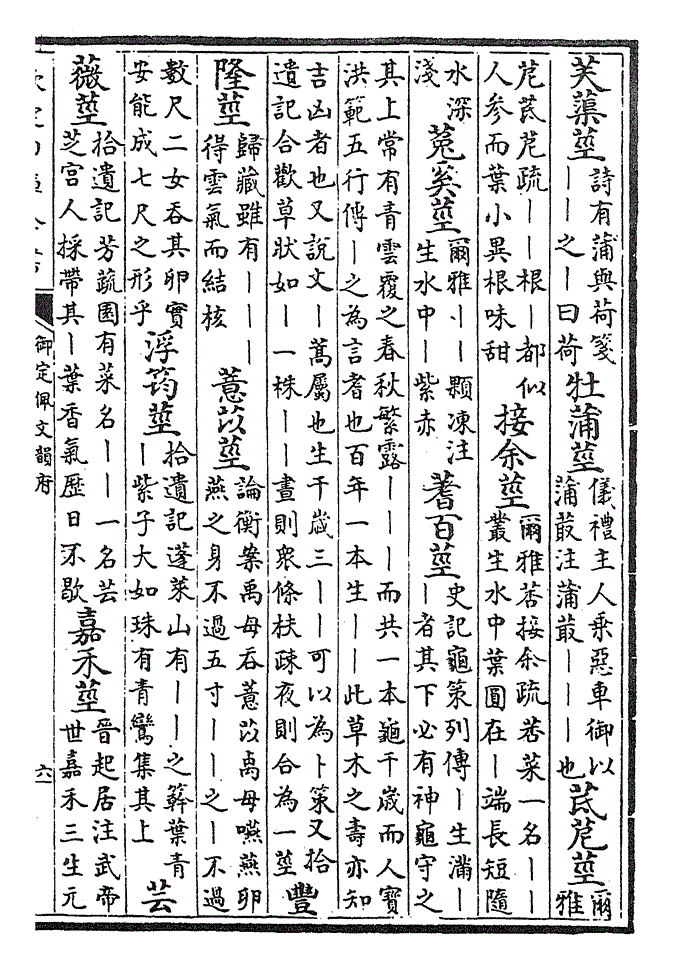 芙蕖莖
詩有蒲與荷箋
丨丨之丨曰荷
牡蒲莖
儀禮主人乗惡車御以
蒲菆注蒲菆丨丨丨也
芪苨莖
爾
雅
苨芪苨疏丨丨根丨都似
人參而葉小異根味甜
接余莖
爾雅莕接余疏莕菜一名丨丨
叢生水中葉圓在丨端長短隨
水深
淺
菟奚莖
爾雅丨丨顆凍注
生水中丨紫赤
蓍百莖
史記龜策列傳丨生滿丨
丨者其下必有神龜守之
其上常有青雲覆之春秋繁露丨丨丨而共一本龜千歲而人寶
洪範五行傳丨之為言耆也百年一本生丨丨此草木之壽亦知
吉凶者也又說文丨蒿屬也生千歲三丨丨可以為卜策又拾
遺記合歡草狀如丨一株丨丨晝則衆條扶疎夜則合為一莖
豐
隆莖
歸藏雖有丨丨丨
得雲氣而結核
薏苡莖
論衡案禹母吞薏苡禹母嚥燕卵
燕之身不過五寸丨丨之丨不過
數尺二女吞其卵實
安能成七尺之形乎
浮筠莖
拾遺記蓬萊山有丨丨之簳葉青
丨紫子大如珠有青鸞集其上
芸
薇莖
拾遺記芳蔬園有菜名丨丨一名芸
芝宮人採帶其丨葉香氣歷日不歇
嘉禾莖
晉起居注武帝
世嘉禾三生元
御定佩文韻府
六